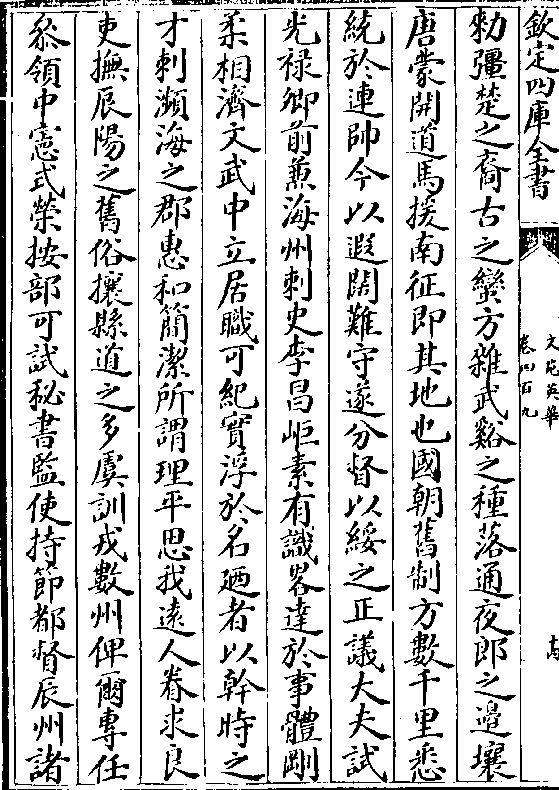 欽定四庫全書
文苑英華
卷四百九
勅彊楚之裔古之蠻方雜武谿之種落通夜郎之邉壤
唐蒙開道馬援南征即其地也國朝舊制方數千里悉
統於連帥今以遐闊難守遂分督以綏之正議大夫試
光禄卿前兼海州刺史李昌岠素有識畧達於事體剛
柔相濟文武中立居職可紀實浮於名廼者以幹時之
才刺瀕海之郡惠和簡潔所謂理平思我遠人眷求良
吏撫辰陽之舊俗攘縣道之多虞訓戎數州俾爾専任
叅領中憲式榮按部可試秘書監使持節都督辰州諸